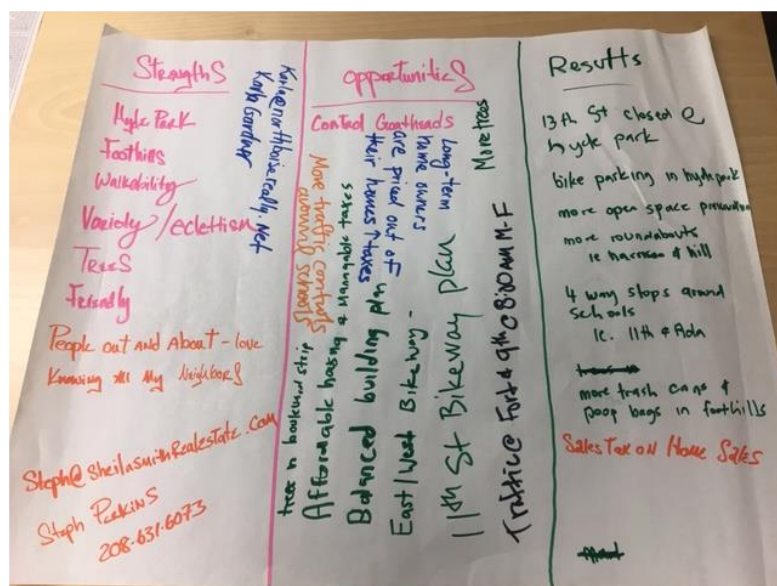 Strengths
Hyde Park
Foothills
Walkability
Variety/eclettism
Trees
Friendly
People out and About - love
Knowing All My Neighbors
Steph@SheilaSmithRealEstate.com
Steph Perkins
208-631-6073
Karla@northboiserealty.net
Karla
Opportunities
Control Goatheads
Long-term
home owners
are priced out of
their homes ↑ taxes
More traffic controls
around schools
trees in boulevard strip
Affordable housing & Manageable taxes
Balanced building plan
East/West Bikeway -
11th St Bikeway plan
Traffic @ Fort & 9th @ 8:20 AM M-F
More trees
Results
13th St closed @
hyde park
bike parking in hyde park
more open space preservation
more roundabouts
ie harrison & hill
4 way stops around
schools
ie. 11th & Ada
more trash cans &
poop bags in foothills
Sales Tax on Home Sales